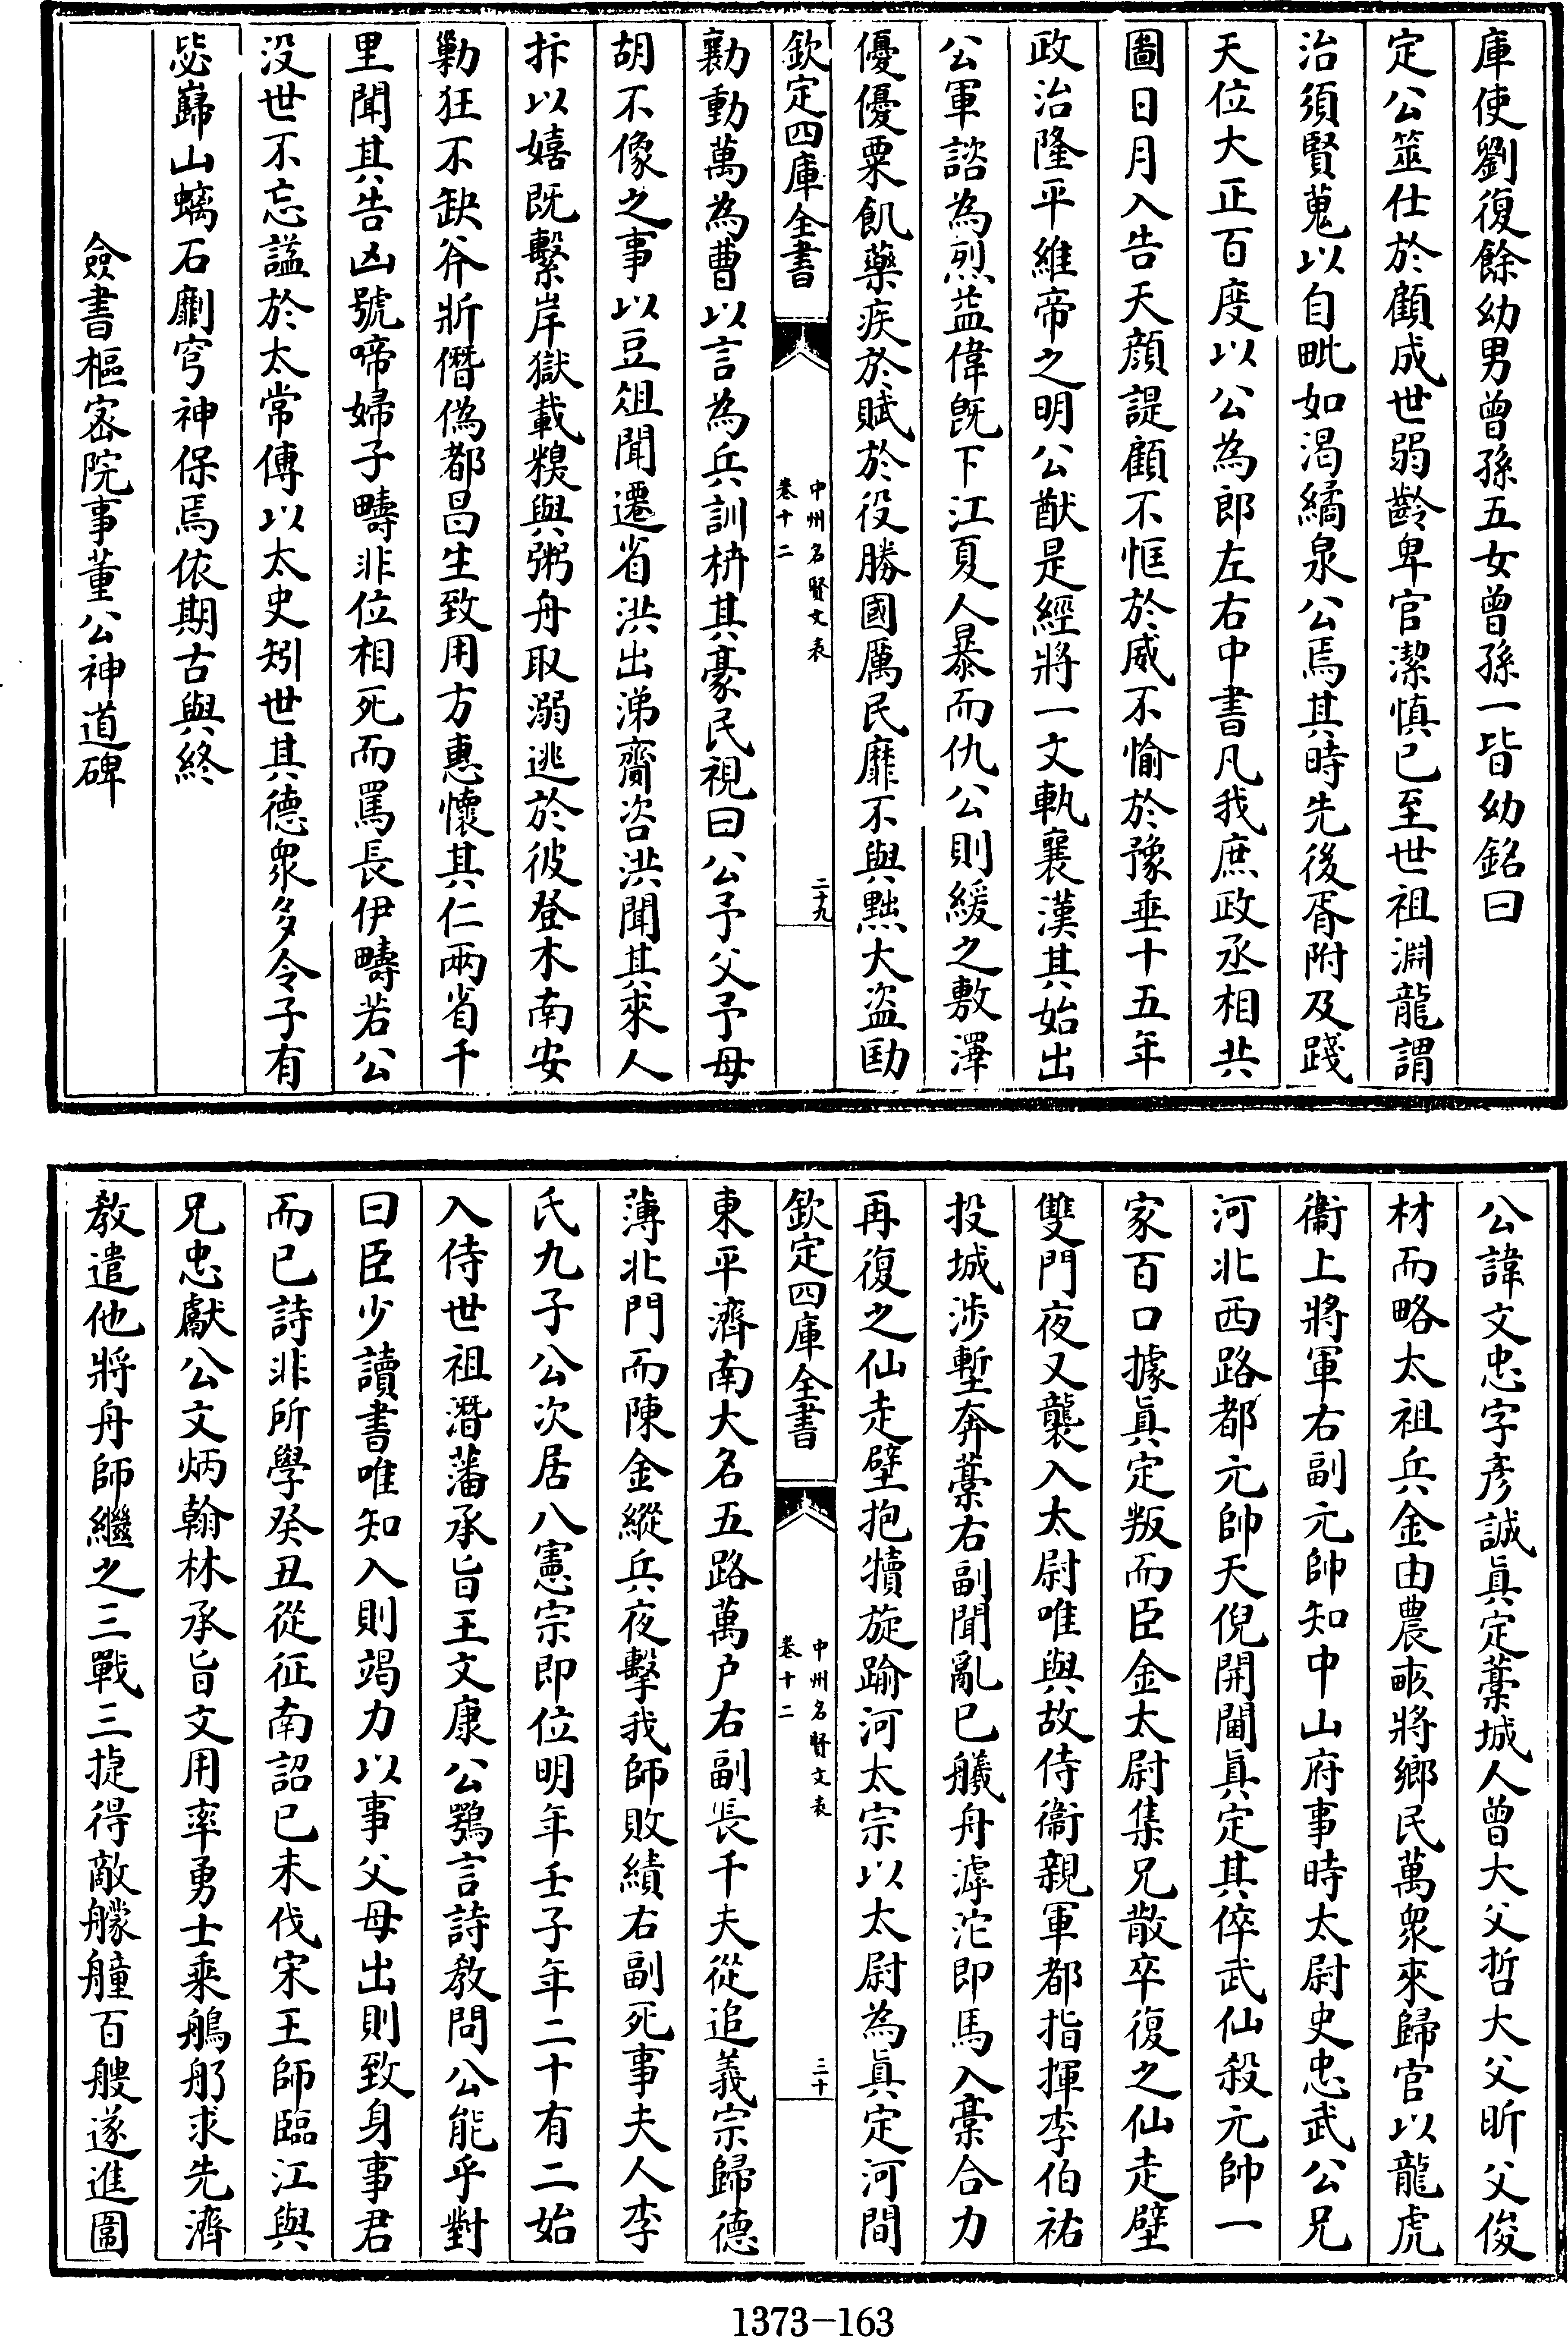 庫使劉復餘幼男曾孫五女曾孫一皆幼銘曰
定公筮仕於顧成世弱齡卑官潔慎已至世祖淵龍謂
治須賢蒐以自毗如渴繘泉公焉其時先後胥附及踐
天位大正百度以公為郎左右中書凡我庶政丞相共
圖日月入告天顔諟顧不恇於威不愉於豫垂十五年
政治隆平維帝之明公猷是經將一文軌襄漢其始出
公軍諮為烈益偉旣下江夏人暴而仇公則緩之敷澤
優優粟飢藥疾於賦於役勝國厲民靡不與黜大盜劻
欽定四庫全書
中州名賢文表
卷十二
二十九
勷動萬為曹以言為兵訓枿其豪民視曰公予父予母
胡不像之事以豆俎聞遷省洪出涕齎咨洪聞其來人
抃以嬉既繫岸獄載糗與粥舟取溺逃於彼登木南安
勦狂不缺斧斨僭偽都昌生致用方惠懷其仁兩省千
里聞其告凶號啼婦子疇非位相死而罵長伊疇若公
没世不忘諡於太常傅以太史矧世其德衆多令子有
毖巋山螭石劘穹神保焉依期古與終
僉書樞密院事董公神道碑
公諱文忠字彥誠眞定藁城人曾大父哲大父昕父俊
材而略太祖兵金由農畯將鄉民萬衆來歸官以龍虎
衞上將軍右副元帥知中山府事時太尉史忠武公兄
河北西路都元帥天倪開閫眞定其倅武仙殺元帥一
家百口據眞定叛而臣金太尉集兄散卒復之仙走壁
雙門夜又襲入太尉唯與故侍衞親軍都指揮李伯祐
投城涉塹奔藁右副聞亂已艤舟滹沱即馬入藁合力
再復之仙走壁抱犢旋踰河太宗以太尉為眞定河間
欽定四庫全書
中州名賢文表
卷十二
三十
東平濟南大名五路萬户右副長千夫從追義宗歸德
薄北門而陳金縱兵夜擊我師敗績右副死事夫人李
氏九子公次居八憲宗即位明年壬子年二十有二始
入侍世祖潛藩承旨王文康公鶚言詩教問公能乎對
曰臣少讀書唯知入則竭力以事父母出則致身事君
而已詩非所學癸丑從征南詔已未伐宋王師臨江與
兄忠獻公文炳翰林承旨文用率勇士乘鵃舠求先濟
敎遣他將舟師繼之三戰三捷得敵艨艟百艘遂進圍
1373-163